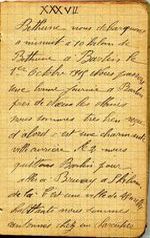 XXXVII
Béthune nous débarquons
à minuit à 10 kilom de
Béthune à Barlin le
1er Octobre 1915 nous passons
une bonne journée à Barlin
près de dans les
nous sommes très bien
d'abord c'est une charmante
ville ouvrière le 2 nous
quittons Barlin pour
aller à Bruay à 8 kilom
de là C'est une ville de
habitants nous sommes
cantonnés chez un charcutier